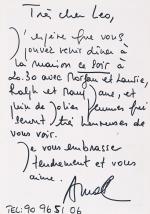 Très cher Leo,
J'espère que vous
pouvez venir dîner à
la maison ce soir à
20.30 avec Morgan et Laurie,
Ralph et Mary Jane, et
plein de jolies femmes qui
seront très heureuses de
vous voir.
Je vous embrasse
tendrement et vous
aime.
TEL: 90 96 51 06